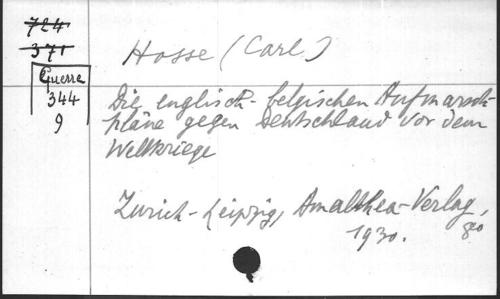 724
371
Guerre
344
9
Hosse (Carl)
Die englisch-belgischen Aufmarsch-
pläne gegen Deutschland vor dem
Weltkriege
Zurich-Leipzig, Amalthea-Verlag,
1930. 8o